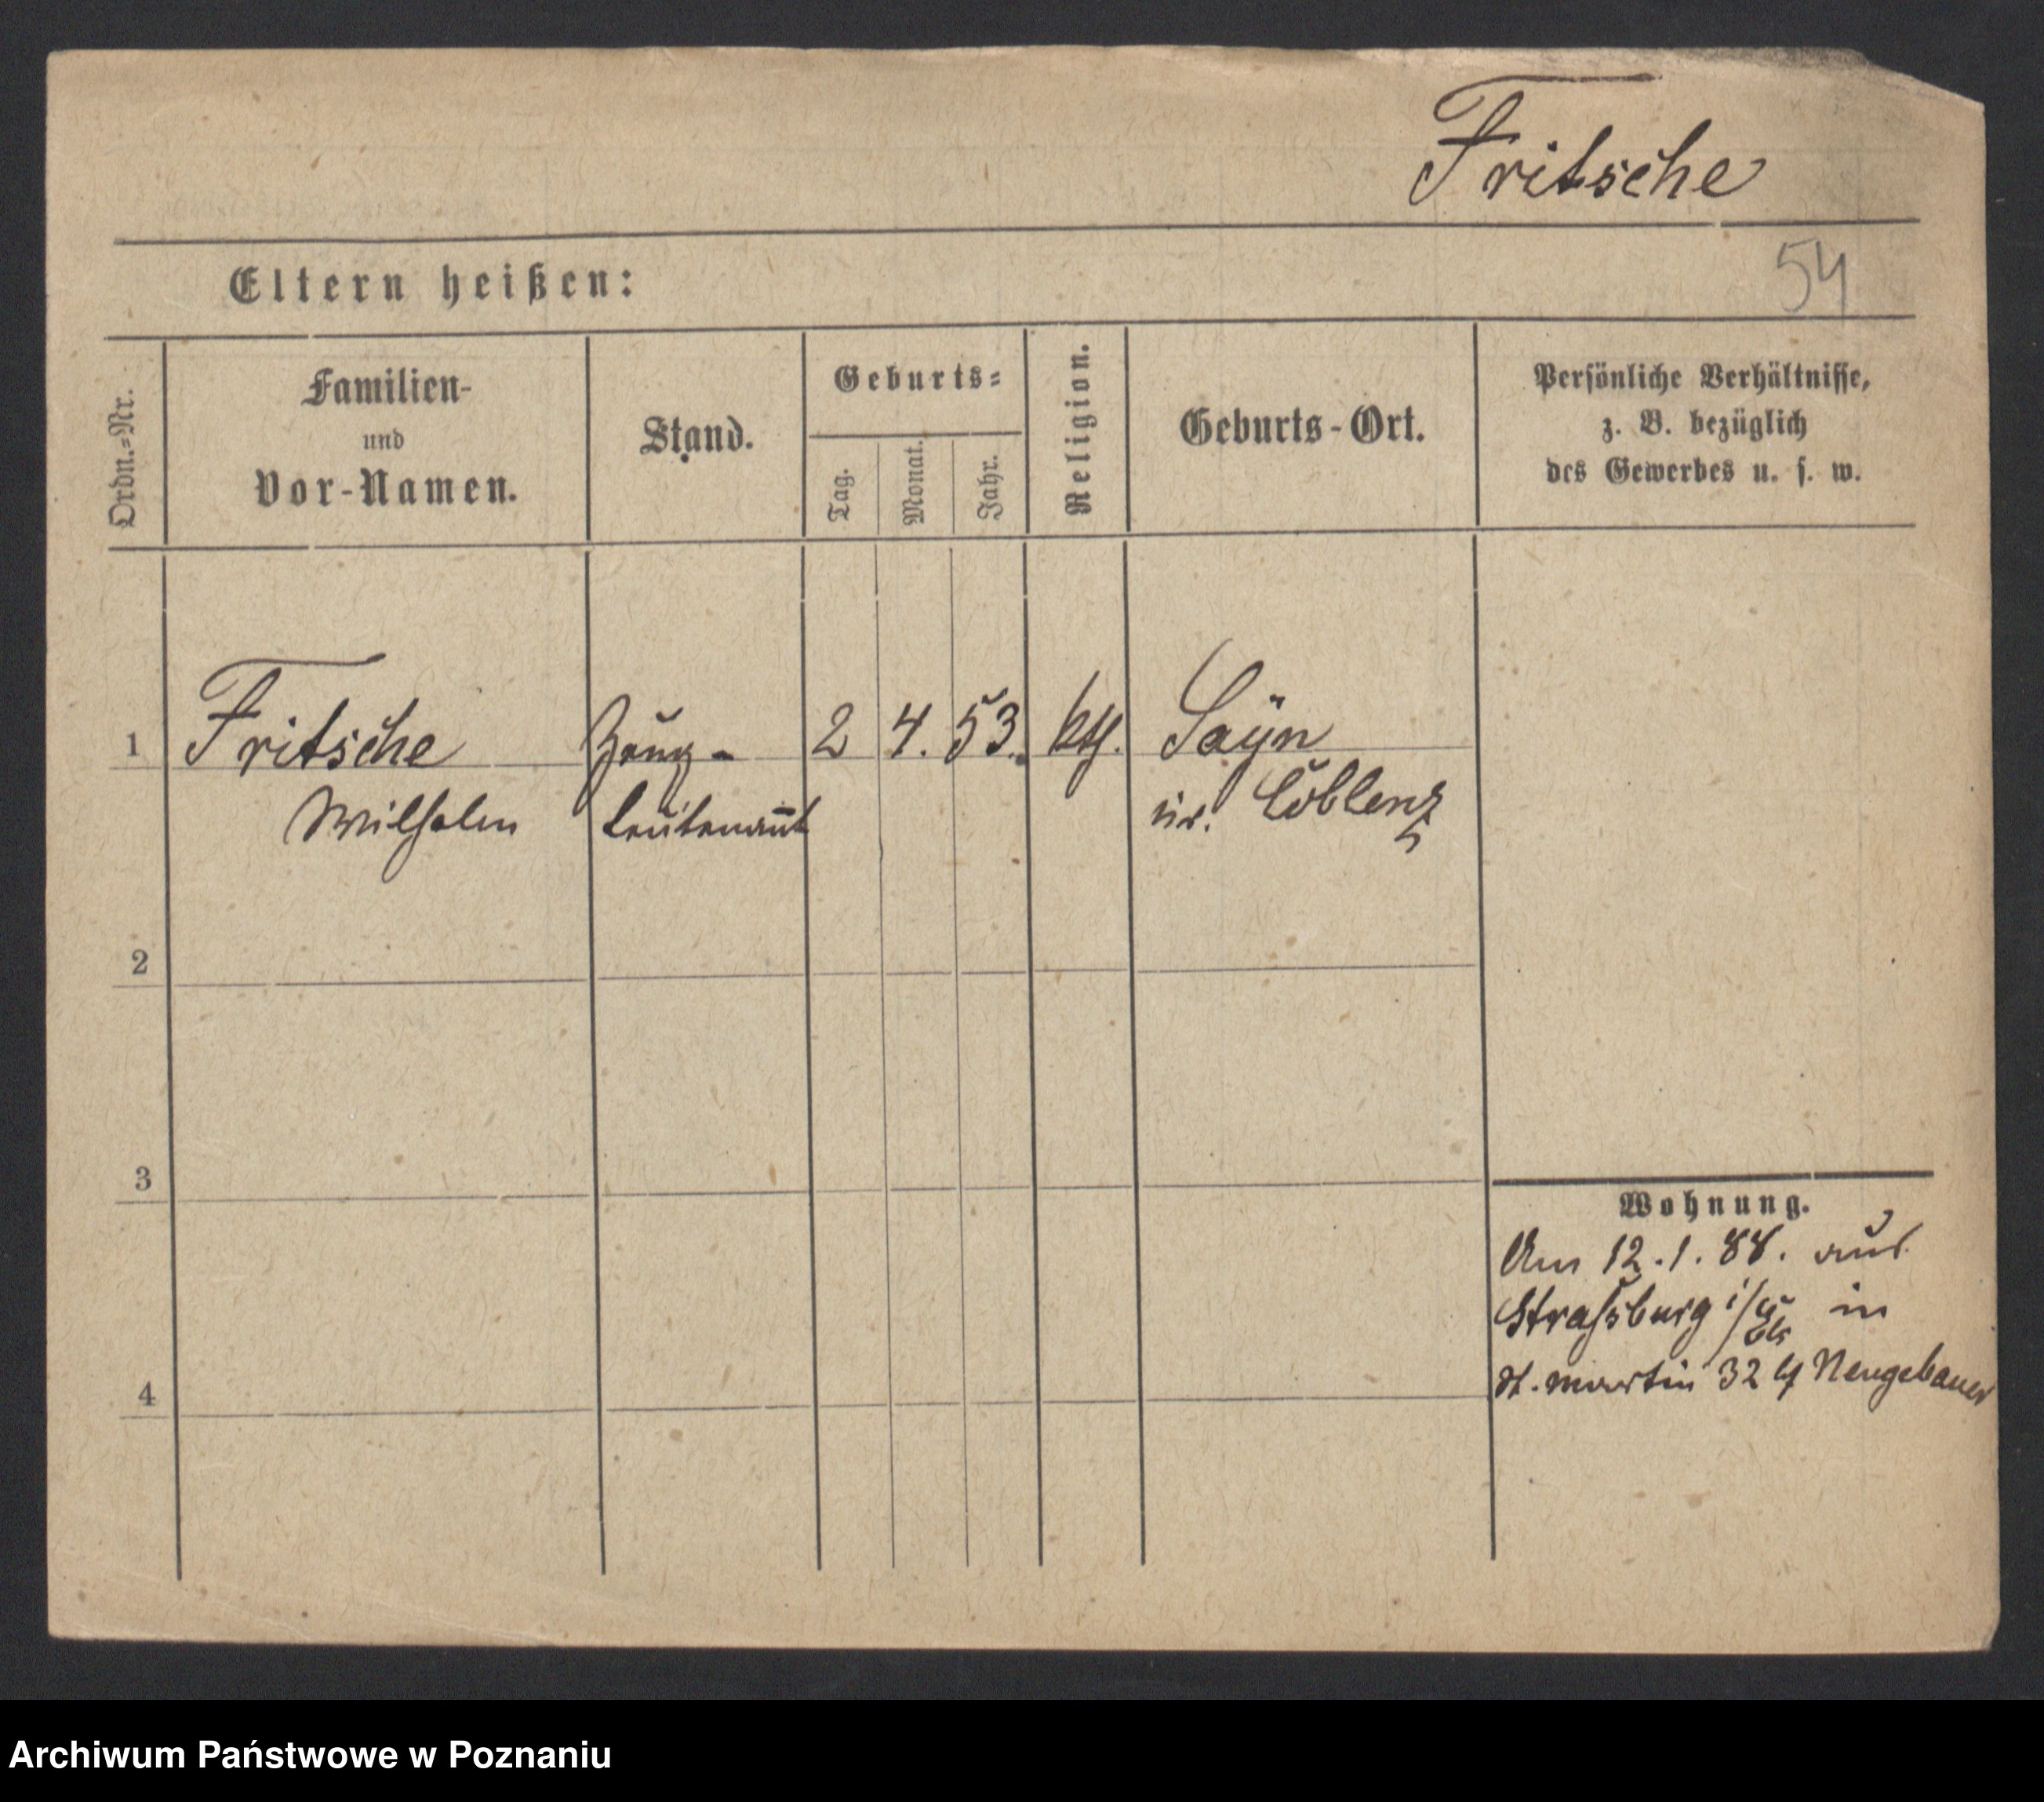 Fritsche
54
Eltern heißen:
Ordn.=Nr.
Familien-
und
Vor-Namen.
Stand.
Geburts=
Tag.
Monat.
Jahr.
Religion.
Geburts-Ort.
Persönliche Verhältnisse,
z. B. bezüglich
des Gewerbes u. s. w.
1 Fritsche Zeug- 2 4. 53. kth. Sayn
Wilhelm Leutenant Coblenz
2
3
4
Wohnung.
Am 12.1.88. aus
Strassburg i/Els in
St. Martin 32 Neugebauer
Archiwum Państwowe w Poznaniu